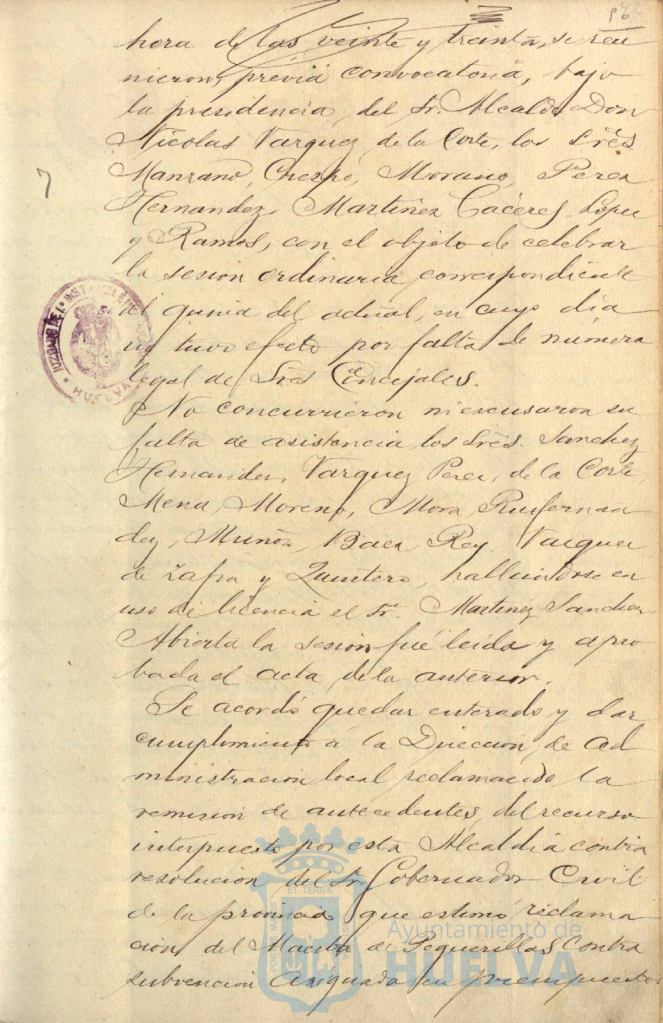 hora de las veinte y treinta, se reu
nieron, previa convocatoria, bajo
la presidencia, del Sr. Alcalde Don
Nicolas Vazquez de la Corte, los Sres
Manzano, Crespo, Morano, Perez
Hernandez, Martinez Cáceres, Lopez
y Ramos, con el objeto de celebrar
la sesion ordinaria correspondiente
al quince del actual, en cuyo dia
no tuvo efecto por falta de número
legal de Sres Concejales.
No concurrieron ni escusaron su
falta de asistencia los Sres. Sanchez
Hernandez, Vazquez Perez, de la Corte
Mena, Moreno, Mora, Ruifernan
dez, Muñoz, Baez Rey, Vazquez
de Zafra y Quintero, hallandose en
uso de licencia el Sr. Martinez Sanchez
Abierta la sesion fué leida y apro
bada el acta de la anterior.
Se acordó quedar enterado y dar
cumplimiento á la Direccion de ad
ministracion local reclamando la
remision de antecedentes del recurso
interpuesto por esta Alcaldia contra
resolucion del Sr. Gobernador Civil
de la provincia que estimó reclama
cion del Maestro de Peguerillas contra
subvencion asignada en presupuesto
JUZGADO DE 1ª INSTANCIA
HUELVA
Ayuntamiento de
HUELVA